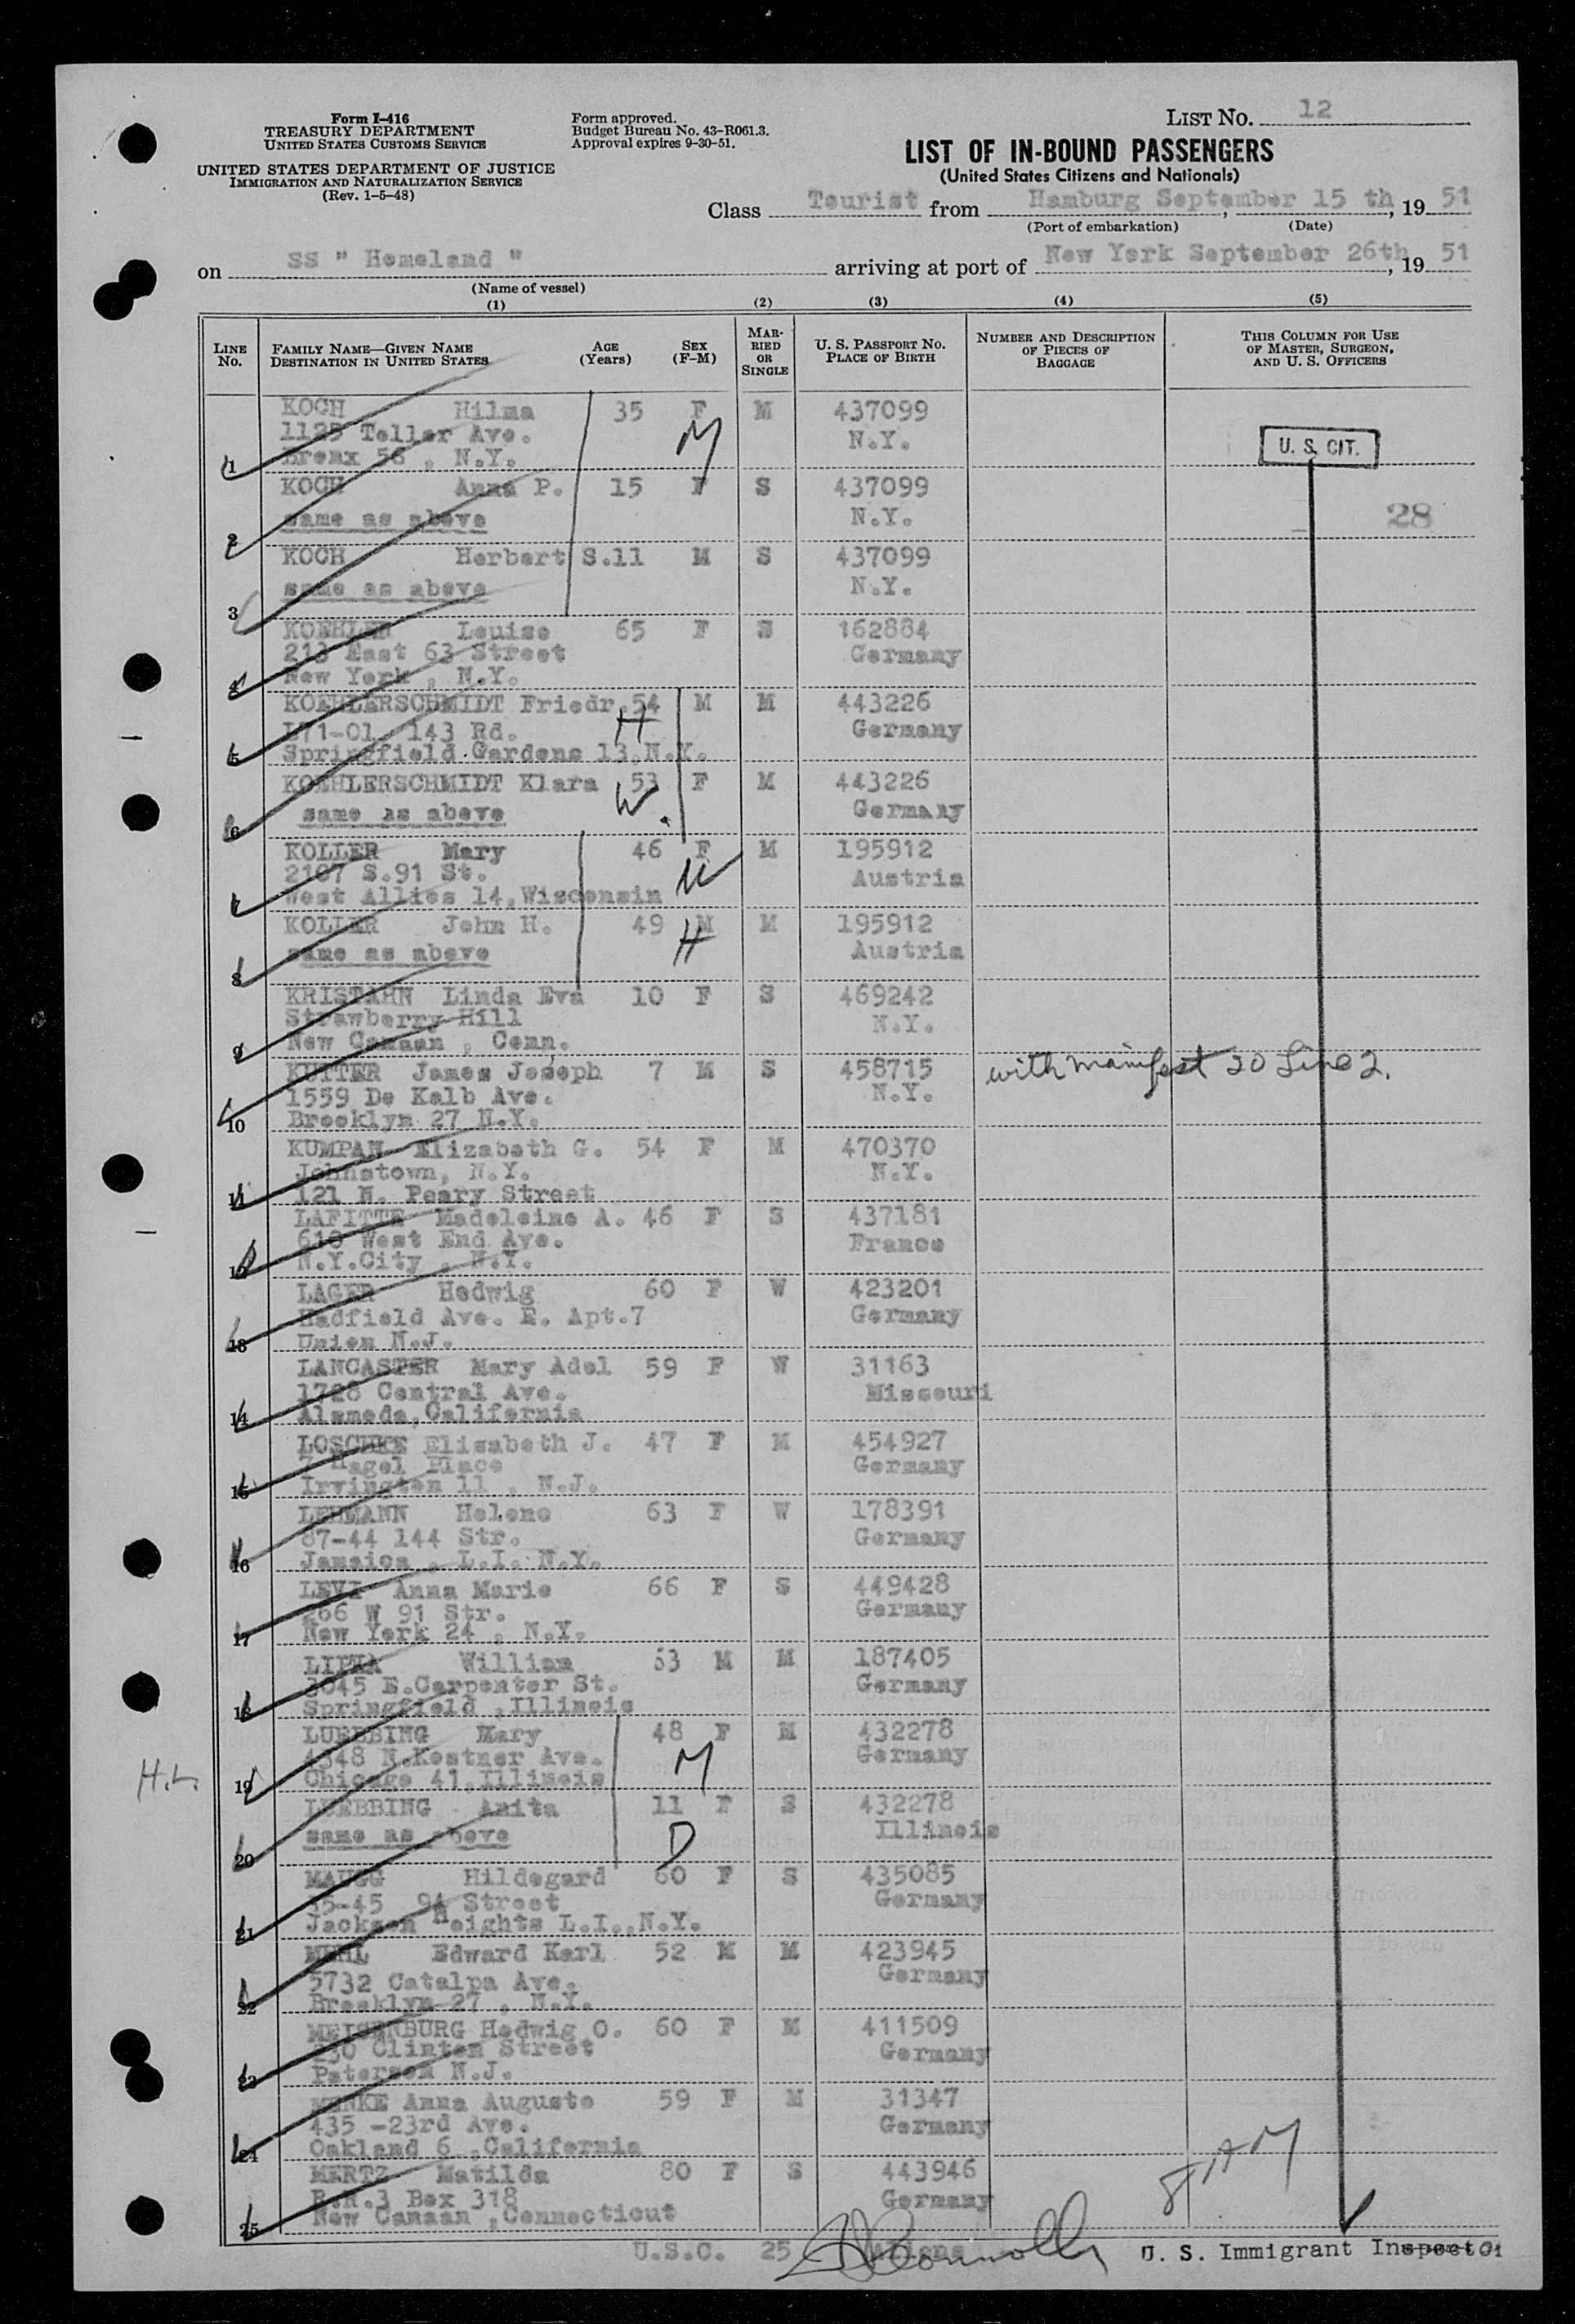 Form I-416
TREASURY DEPARTMENT
UNITED STATES CUSTOMS SERVICE
UNITED STATES DEPARTMENT OF JUSTICE
IMMIGRATION AND NATURALIZATION SERVICE
(Rev. 1-5-48)
Form approved.
Budget Bureau No. 43-R061.3.
Approval expires 9-30-51.
LIST NO. 12
LIST OF IN-BOUND PASSENGERS
(United States Citizens and Nationals)
Class Tourist from Hamburg September 15 th, 19 51
(Port of embarkation) (Date)
on SS " Homeland " arriving at port of New York September 26th, 19 51
(Name of vessel)
(1) (2) (3) (4) (5)
LINE NO. FAMILY NAME—GIVEN NAME DESTINATION IN UNITED STATES AGE (Years) SEX (F-M) MARRIED OR SINGLE U. S. PASSPORT NO. PLACE OF BIRTH NUMBER AND DESCRIPTION OF PIECES OF BAGGAGE THIS COLUMN FOR USE OF MASTER, SURGEON, AND U. S. OFFICERS
KOCH Hilma 35 F M 437099
1125 Teller Ave. M N.Y.
1 Bronx 56 , N.Y. U. S. CIT.
KOCH Anna P. 15 F S 437099
2 same as above N.Y. 28
KOCH Herbert S. 11 M S 437099
3 same as above N.Y.
KOEHLER Louise 65 F S 162884
213 East 63 Street Germany
4 New York , N.Y.
KOEHLERSCHMIDT Friedr. 54 M M 443226
171-01 143 Rd. H Germany
5 Springfield Gardens 13, N.Y.
KOEHLERSCHMIDT Klara 53 F M 443226
6 same as above W. Germany
KOLLER Mary 46 F M 195912
2107 S.91 St. W Austria
7 West Allies 14, Wisconsin
KOLLER John H. 49 M M 195912
8 same as above H Austria
KRISTAHN Linda Eva 10 F S 469242
Strawberry Hill N.Y.
9 New Canaan , Conn.
KUTTER James Joseph 7 M S 458715 with manifest 20 Line 2.
1559 De Kalb Ave. N.Y.
10 Brooklyn 27 N.Y.
KUMPAN Elizabeth G. 54 F M 470370
Johnstown, N.Y. N.Y.
11 121 N. Peary Street
LAFITTE Madeleine A. 46 F S 437181
610 West End Ave. France
12 N.Y.City , N.Y.
LAGER Hedwig 60 F W 423201
Hadfield Ave. E. Apt.7 Germany
13 Union N.J.
LANCASTER Mary Adel 59 F W 31163
1728 Central Ave. Missouri
14 Alameda, California
LOSCHKE Elisabeth J. 47 F M 454927
7 Hagel Place Germany
15 Irvington 11 , N.J.
LEHMANN Helene 63 F W 178391
87-44 144 Str. Germany
16 Jamaica , L.I. N.Y.
LEVI Anna Marie 66 F S 449428
266 W 91 Str. Germany
17 New York 24 , N.Y.
William M M 187405
3045 E.Carpenter St. Germany
18 Springfield , Illinois
LUEBBING Mary 48 F M 432278
4348 N.Kostner Ave. M Germany
H.L. 19 Chicago 41, Illinois
LUEBBING Anita 11 F S 432278
20 same as above D Illinois
MAUGG Hildegard 60 F S 435085
35-45 94 Street Germany
21 Jackson Heights L.I., N.Y.
MEHL Edward Karl 52 M M 423945
5732 Catalpa Ave. Germany
22 Brooklyn 27 , N.Y.
MEISENBURG Hedwig O. 60 F M 411509
230 Clinton Street Germany
23 Paterson N.J.
MENKE Anna Auguste 59 F M 31347
435 -23rd Ave. Germany
24 Oakland 6 , California
MERTZ Matilda 80 F S 443946
R.R.3 Box 318 Germany
25 New Canaan , Connecticut
U.S.C. 25 Aliens U. S. Immigrant Inspector